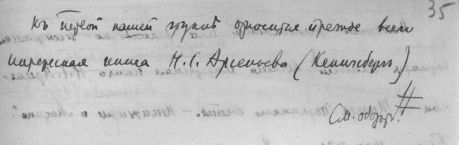 35
Къ первой нашей группѣ относится прежде всего
интересная книга Н. С. Арсеньева (Кенигсберг)
См. оборот. #